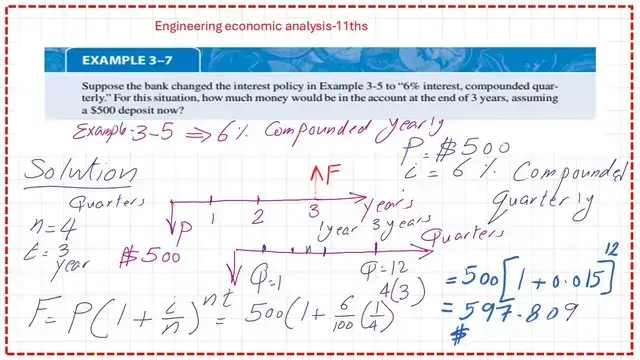 Engineering economic analysis-11ths
EXAMPLE 3–7
Suppose the bank changed the interest policy in Example 3-5 to “6% interest, compounded quar-
terly.” For this situation, how much money would be in the account at the end of 3 years, assuming
a $500 deposit now?
Example-3-5 ⇒ 6% Compounded Yearly
P = $500
i = 6% Compounded
quarterly
Solution
Quarters
n=4
t=3
year
$500
P
1 2 3
F
Years
1year 3years
Quarters
Q=1
Q=12
4(3)
F = P(1 + i/n)^nt = 500(1 + 6/100 (1/4)
= 500[1 + 0.015]^12
= 597.809
$